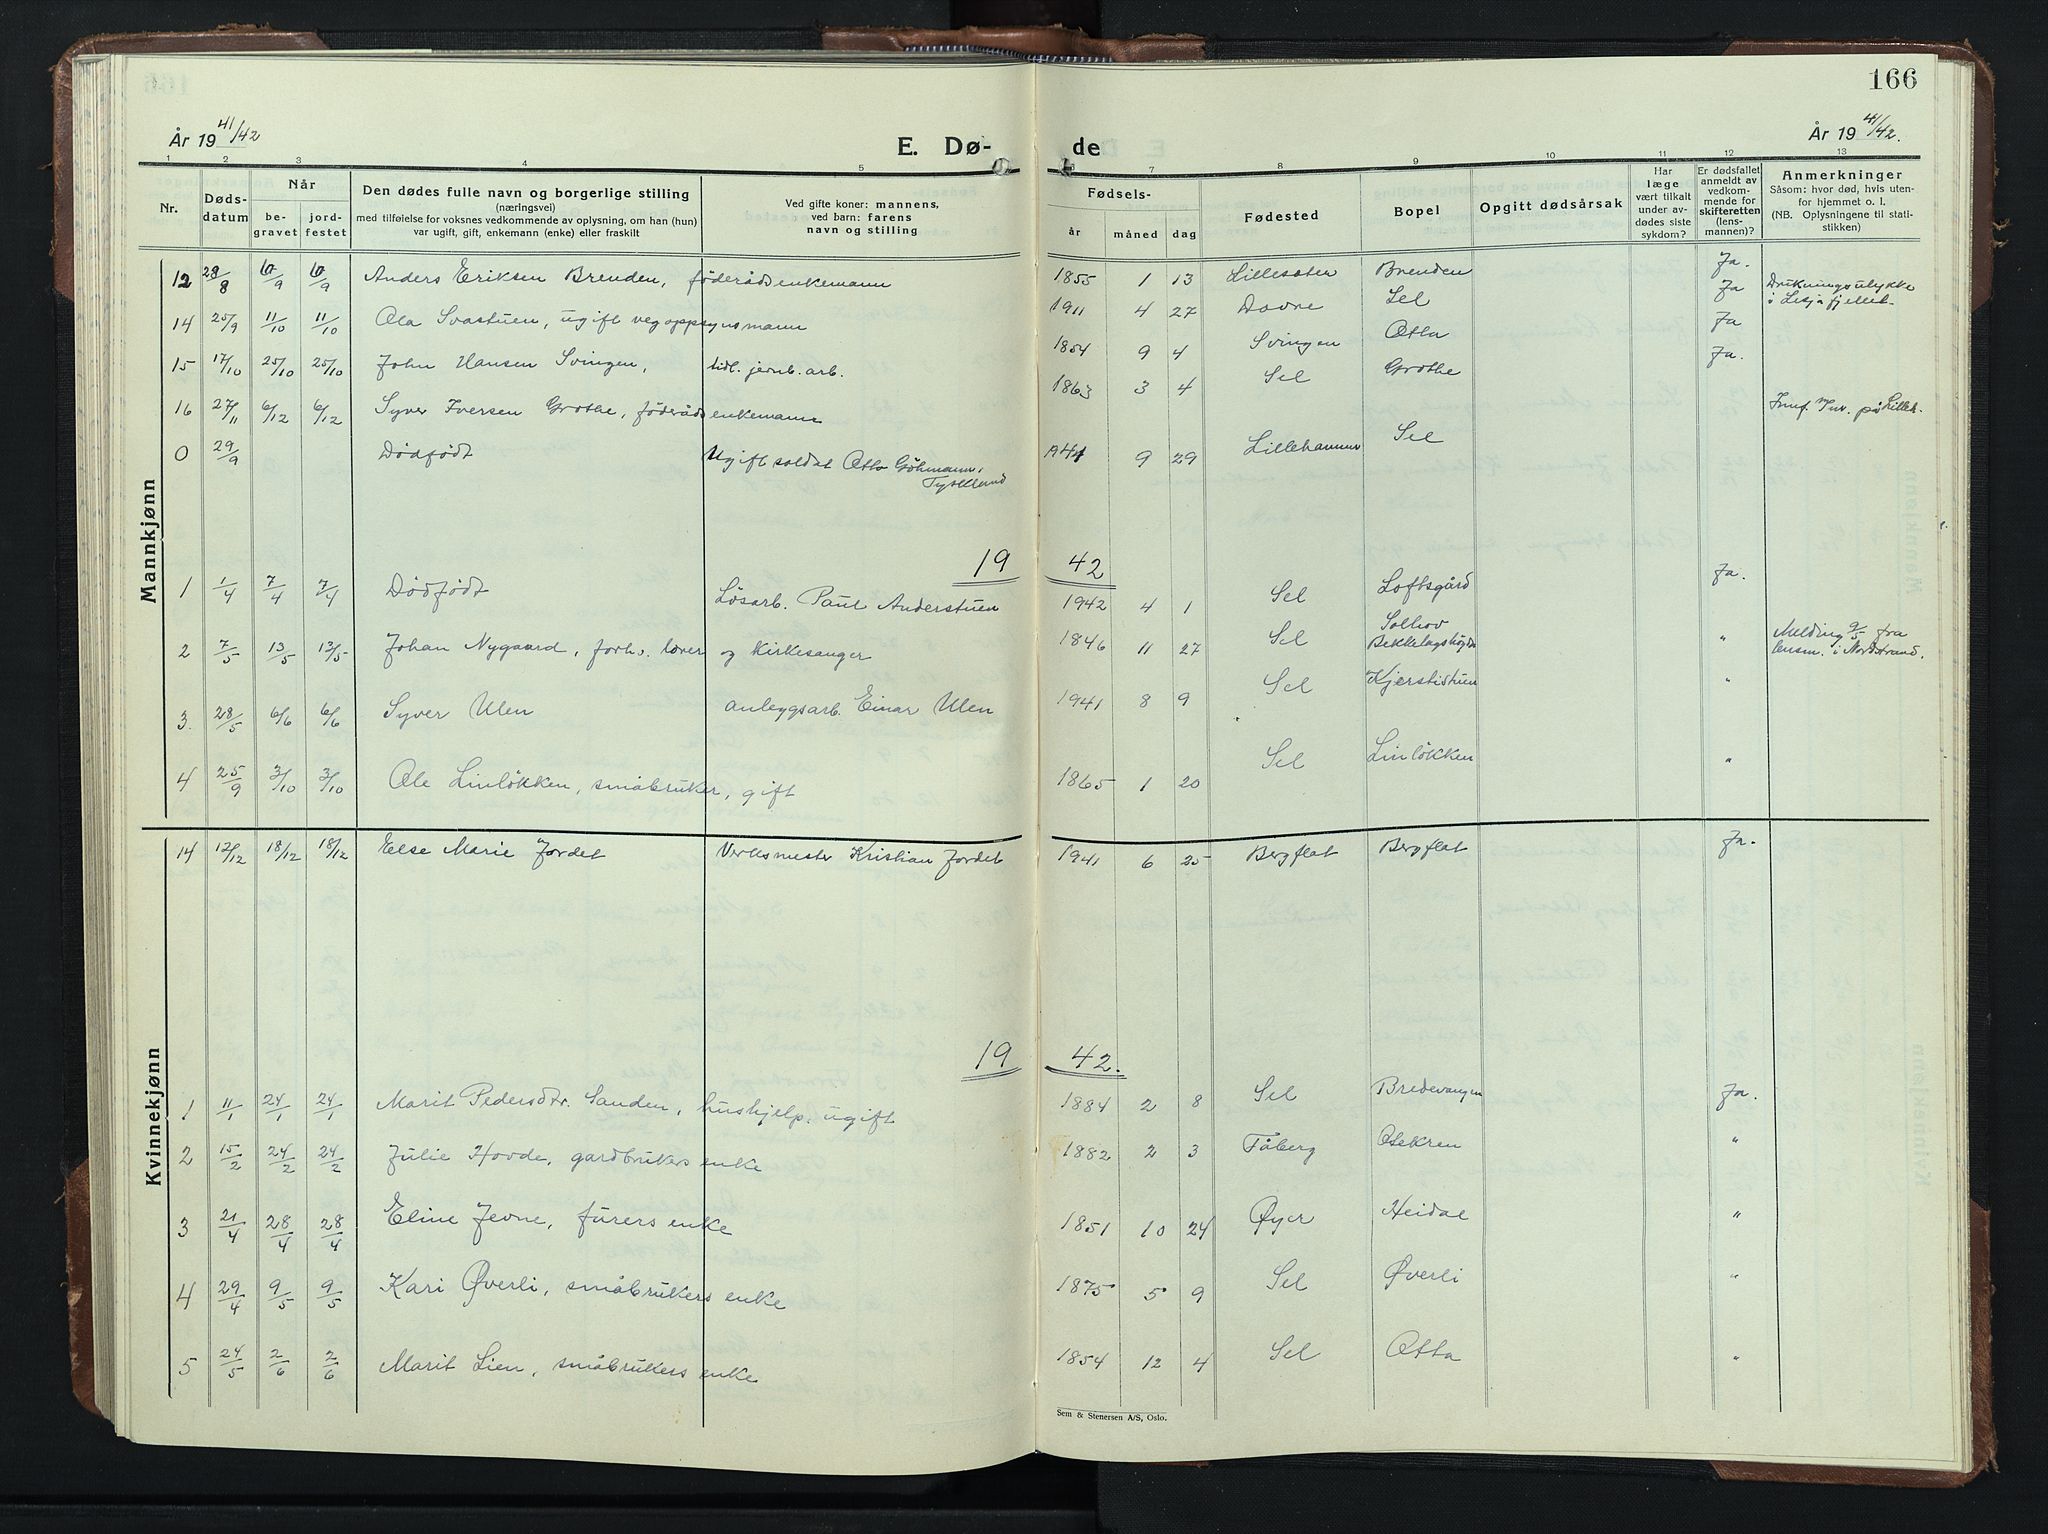 166
År 19 41/42
E. Dø-
de
År 19 41/42.
1 2 3 4 5 6 7 8 9 10 11 12 13
Nr.
Døds-
datum
Når
be-
gravet
jord-
festet
Den dødes fulle navn og borgerlige stilling
(næringsvei)
med tilføielse for voksnes vedkommende av oplysning, om han (hun)
var ugift, gift, enkemann (enke) eller fraskilt
Ved gifte koner: mannens,
ved barn: farens
navn og stilling
Fødsels-
år måned dag
Fødested
Bopel
Opgitt dødsårsak
Har
læge
vært tilkalt
under av-
dødes siste
sykdom?
Er dødsfallet
anmeldt av
vedkom-
mende for
skifteretten
(lens-
mannen)?
Anmerkninger
Såsom: hvor død, hvis uten-
for hjemmet o. l.
(NB. Oplysningene til stati-
stikken)
Mannkjønn
12 28/8 6/9 6/9 Anders Eriksen Brenden, föderådsenkemann 1855 1 13 Lillesæter Brenden Ja.
14 25/9 11/10 11/10 Ola Svastuen, ugift vegoppsynsmann 1911 4 27 Dovre Sel Ja Drukningsulykke
i Lesja fjellet
15 17/10 25/10 25/10 John Hansen Svingen, tidl. jernb. arb. 1854 9 4 Svingen Otta Ja
16 27/11 6/12 6/12 Syver Iversen Grothe, föderådsenkemann 1863 3 4 Sel Grothe Ja.
0 29/9 Dödfödt Ugift soldat Otto Göhmann, 1941 9 29 Lillehammer Sel på Lilleh.
Tyskland
19 42
1 1/4 7/4 7/4 Dödfödt Lösarb. Paul Anderstuen 1942 4 1 Sel Loftsgård Ja.
2 7/5 13/5 13/5 Johan Nygaard, forhv. lærer og kirkesanger 1846 11 27 Sel Solhov
Bekkelagshøgda " Melding 9/5 fra
lensm. i Nordstrand.
3 28/5 6/6 6/6 Syver Ulen anleggsarb. Einar Ulen 1941 8 9 Sel Kjerstistuen "
4 25/9 3/10 3/10 Ole Linlökken, småbruker, gift 1865 1 20 Sel Linlökken "
Kvinnekjønn
14 12/12 18/12 18/12 Else Marie Jordet Verksmester Kristian Jordet 1941 6 25 Bergflat Bergflat Ja.
19 42.
1 11/1 24/1 24/1 Marit Pedersdtr. Sanden, hushjelp, ugift 1884 2 8 Sel Bredevangen Ja.
2 15/2 24/2 24/2 Julie Hovde, gardbrukers enke 1882 2 3 Fåberg "
3 21/4 28/4 28/4 Eline Jevne, furers enke 1851 10 24 Øyer Heidal "
4 29/4 9/5 9/5 Kari Øverli, småbrukers enke 1875 5 9 Sel Øverli "
5 24/5 2/6 2/6 Marit Lien, småbrukers enke 1854 12 4 Sel Otta "
Sem & Stenersen A/S, Oslo.